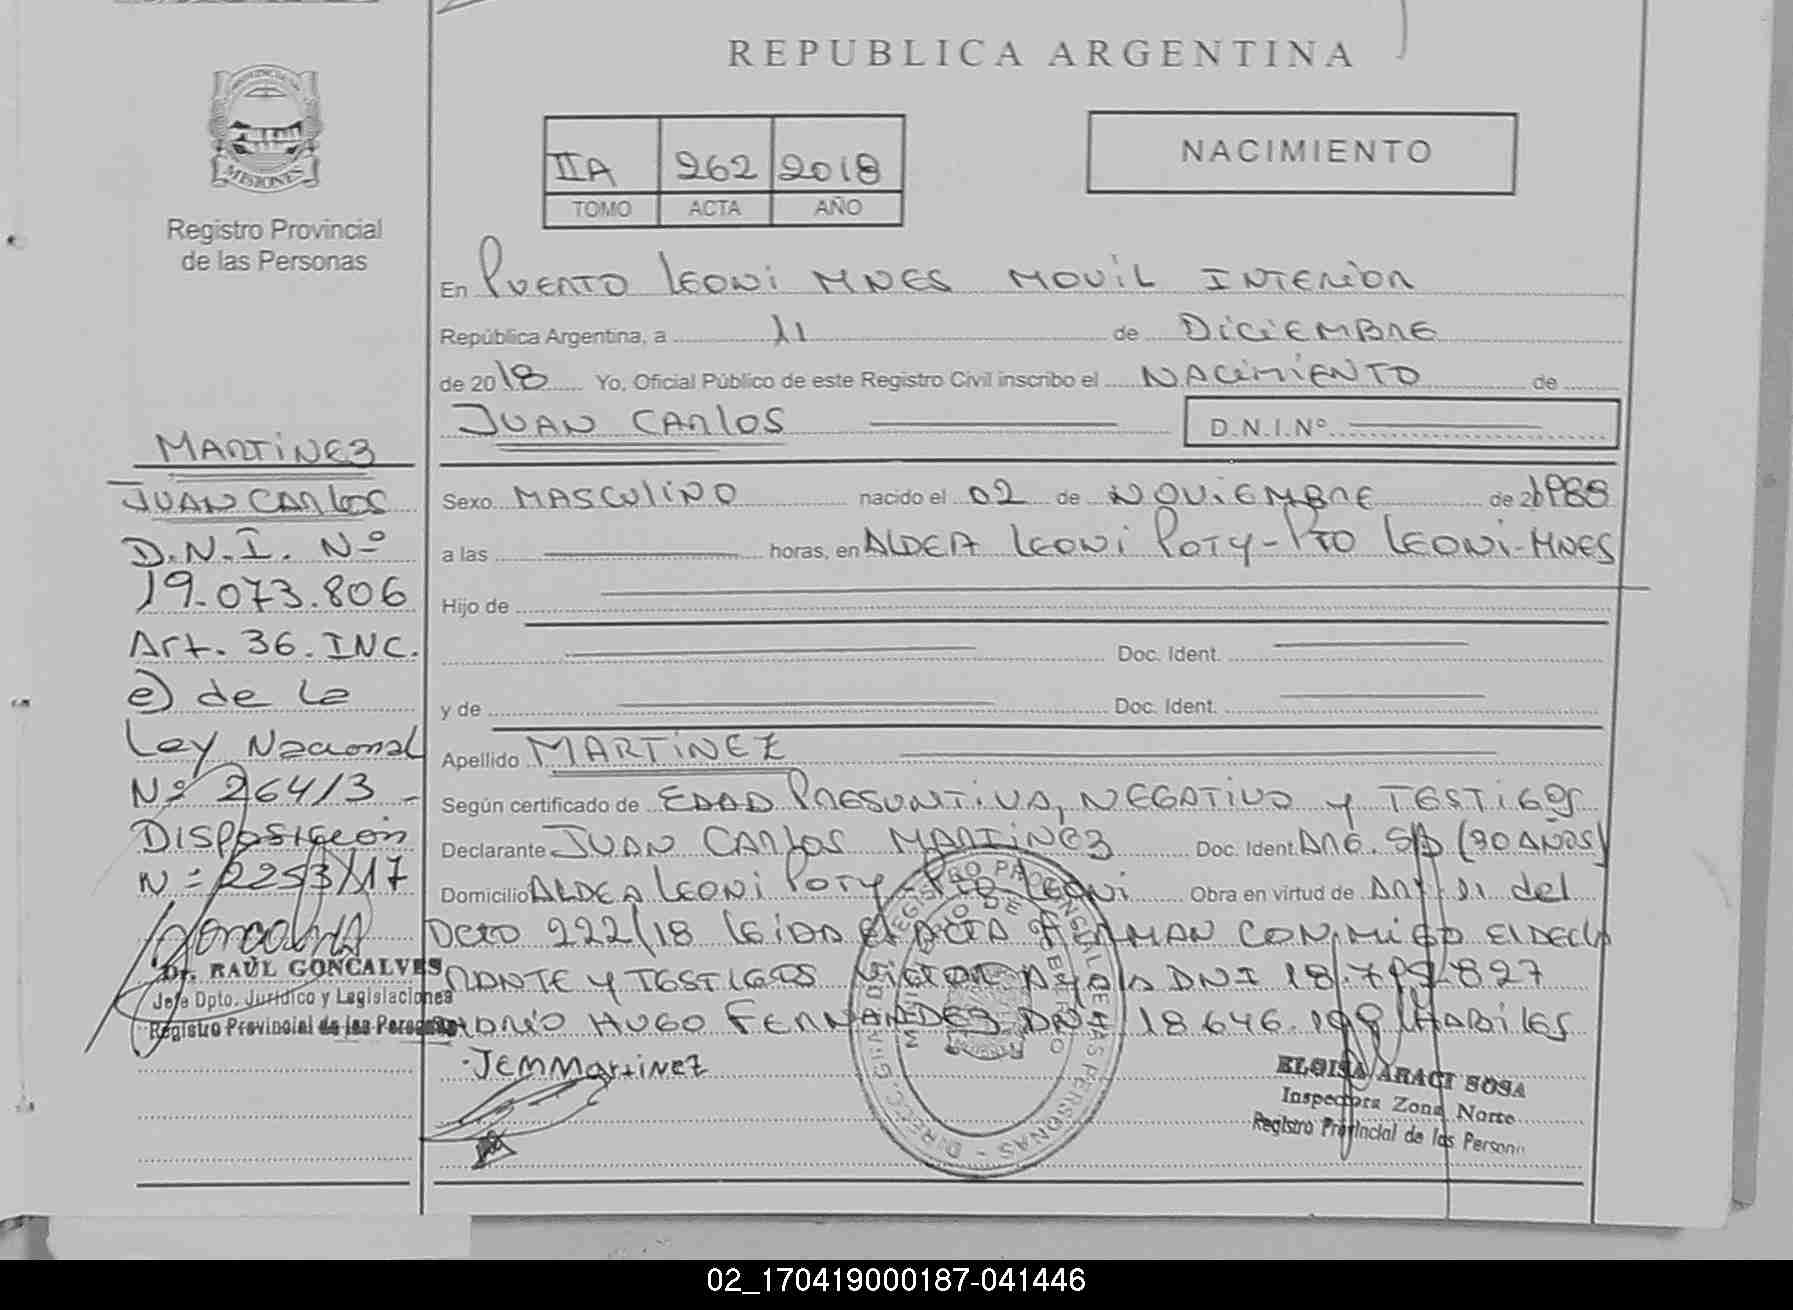 REPUBLICA ARGENTINA
MISIONES
Registro Provincial
de las Personas
IIA 262 2018
TOMO ACTA AÑO
NACIMIENTO
En PUERTO LEONI MNES MOVIL INTERIOR
República Argentina, a 11 de DICIEMBRE
de 2018 Yo, Oficial Público de este Registro Civil inscribo el NACIMIENTO de
JUAN CARLOS D.N.I.Nº
Sexo MASCULINO nacido el 02 de NOVIEMBRE de 1988
a las horas, en ALDEA LEONI POTY-PTO LEONI-MNES
Hijo de
Doc. Ident.
y de Doc. Ident.
Apellido MARTINEZ
Según certificado de EDAD PRESUNTIVA, NEGATIVO y TESTIGOS
Declarante JUAN CARLOS MARTINEZ Doc. Ident. ARG. S/D (30 AÑOS)
Domicilio ALDEA LEONI POTY - PTO LEONI Obra en virtud de del
DCTO 222/18 LEIDA EL ACTA FIRMAN CONMIGO EL DECLA
RANTE Y TESTIGOS VICTOR AYALA DNI 827
HUGO FERNANDEZ DNI 18.646. HABILES
MARTINEZ
JUAN CARLOS
D.N.I. Nº
19.073.806
Art. 36. INC.
e) de la
Ley Nacional
Nº 26413 -
DISPOSICION
Nº 2253/17
Dr. RAÚL GONCALVES
Jefe Dpto. Jurídico y Legislaciones
Registro Provincial de las Personas
JEMMartinez
ELOISA ARACI SOSA
Inspectora Zona Norte
Registro Provincial de las Person
02_170419000187-041446